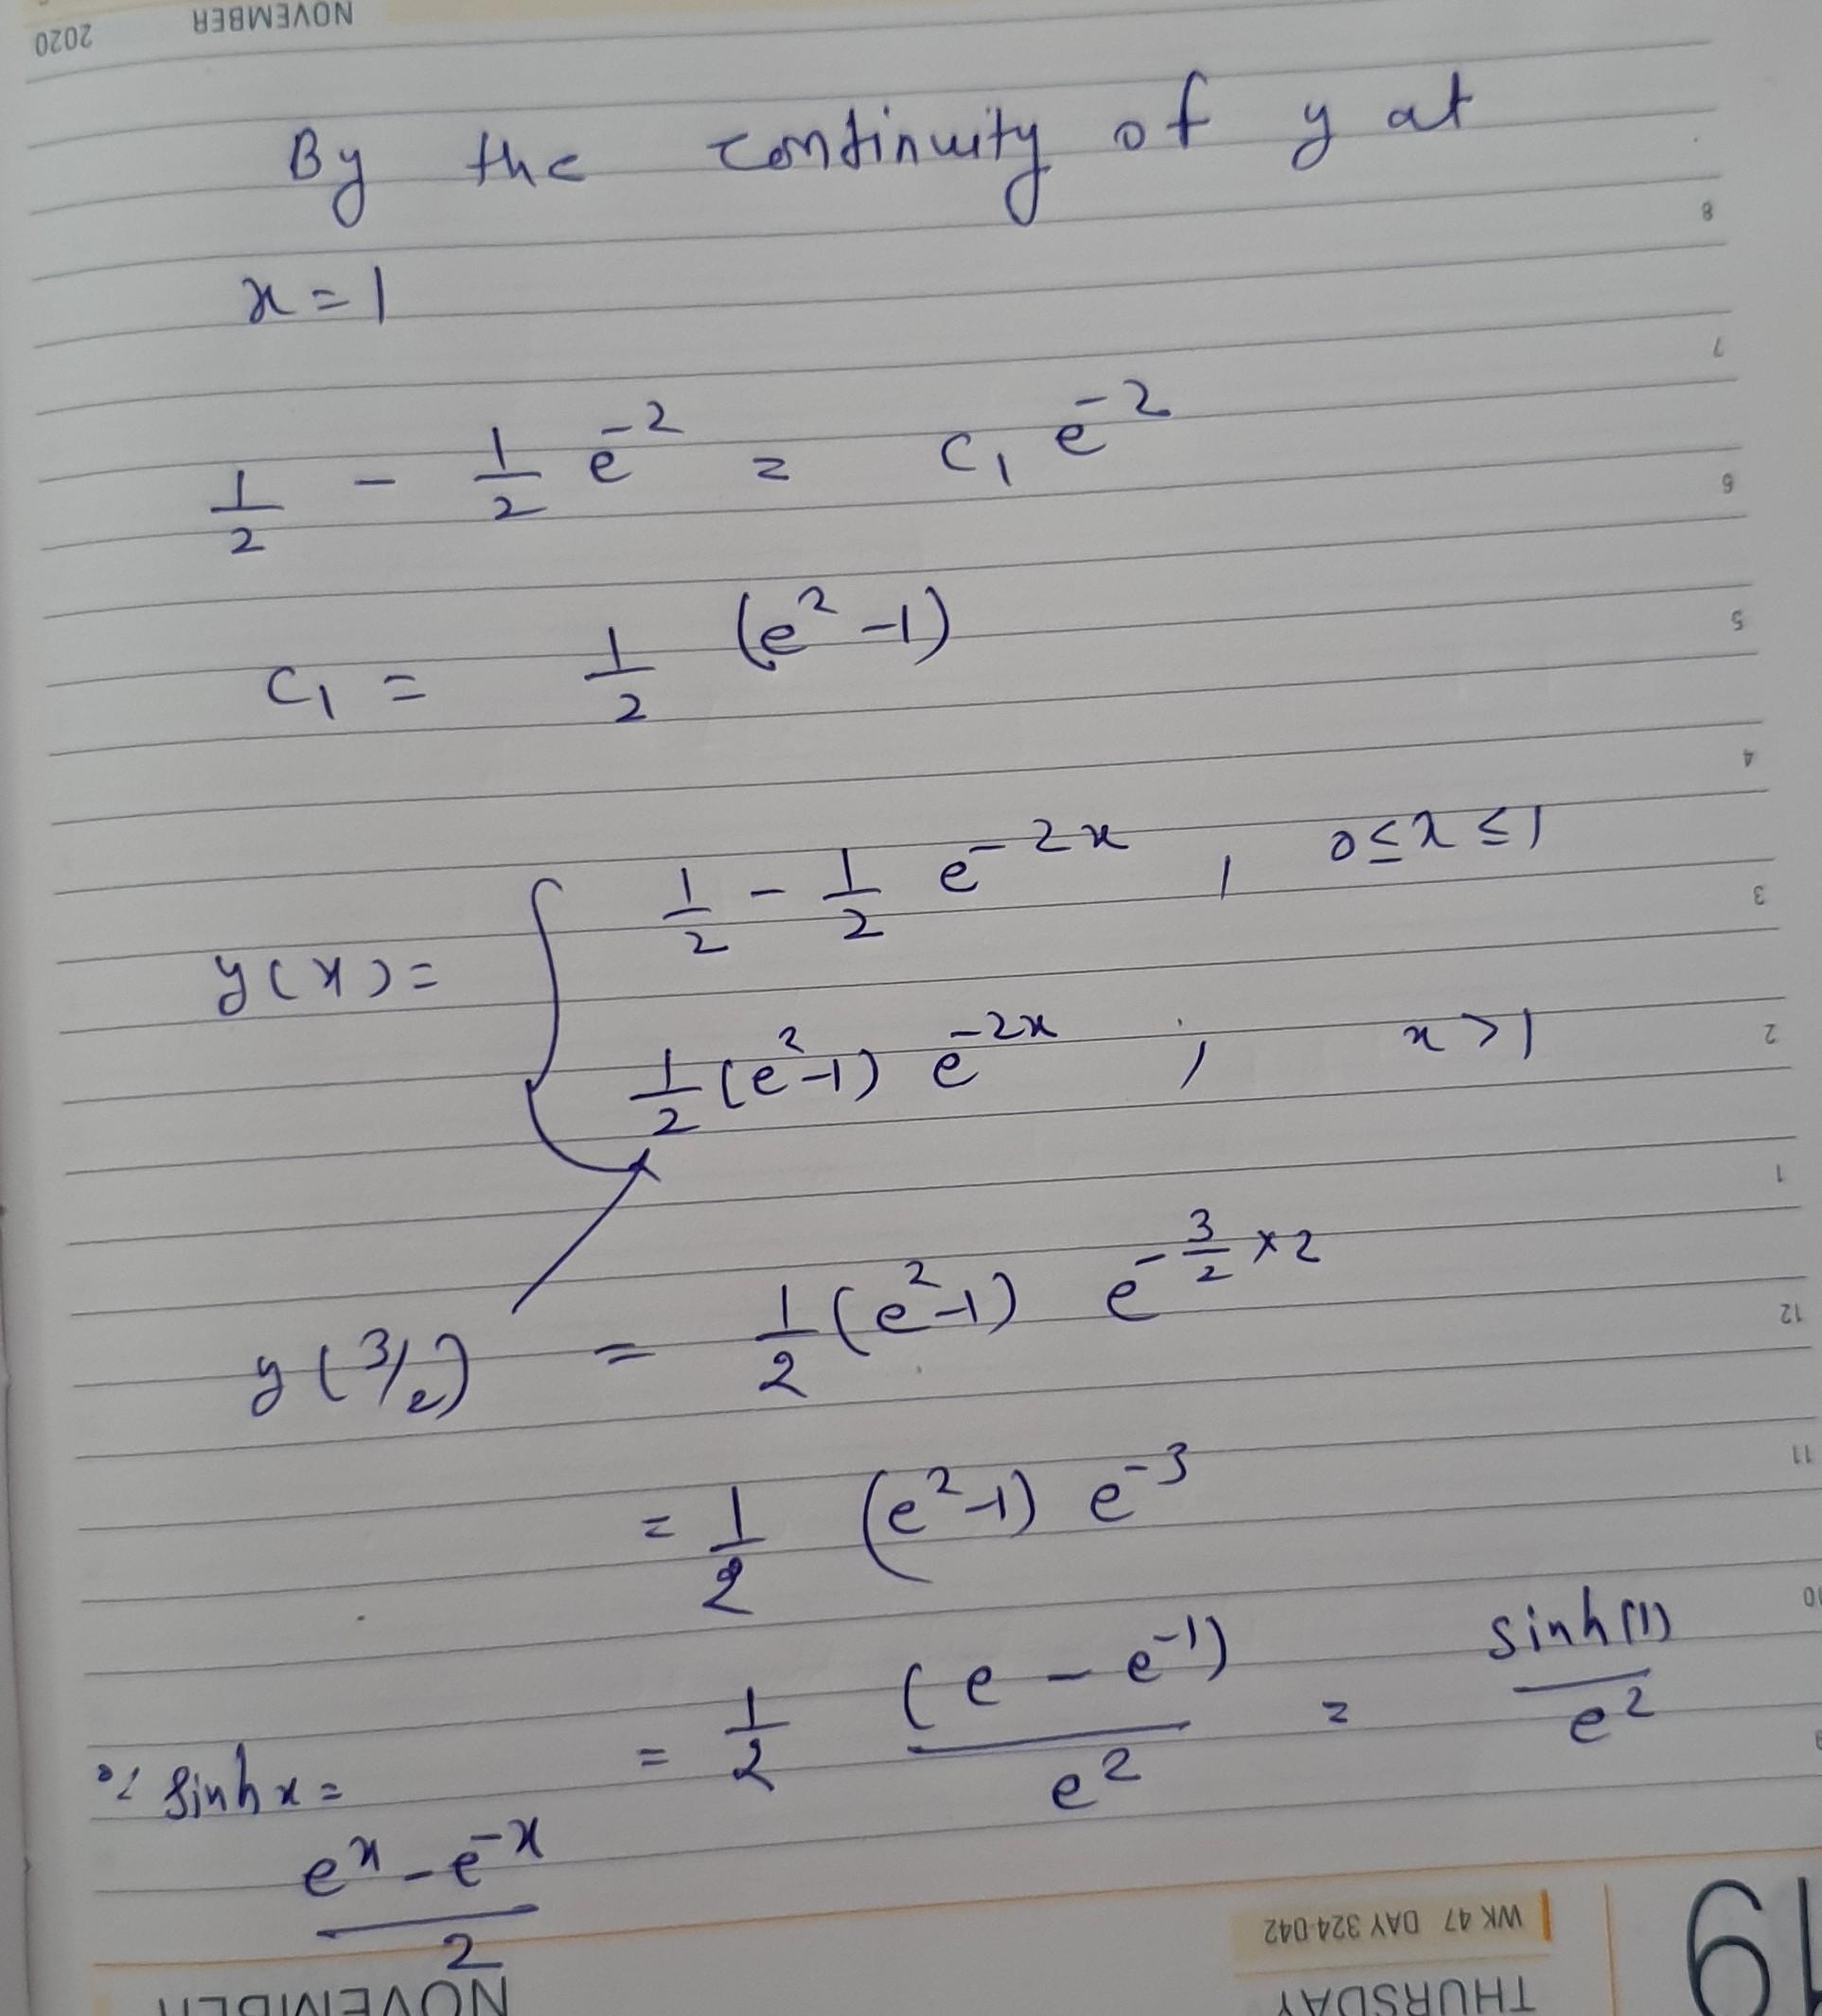 2020 NOVEMBER
By the continuity of y at
x = 1
1/2 - 1/2 e^-2 = c₁ e^-2
c₁ = 1/2 (e² -1)
y(x) = { 1/2 - 1/2 e^-2x , 0≤x≤1
1/2 (e²-1) e^-2x ; x>1
y(3/2) = 1/2 (e²-1) e^-3/2 × 2
= 1/2 (e²-1) e^-3
= 1/2 (e - e^-1)/e² = sinh(1)/e²
∵ sinh x = (e^x - e^-x)/2
8
7
6
5
4
3
2
1
12
11
10
9
WK 47 DAY 324-042
THURSDAY
19
NOVEMBER